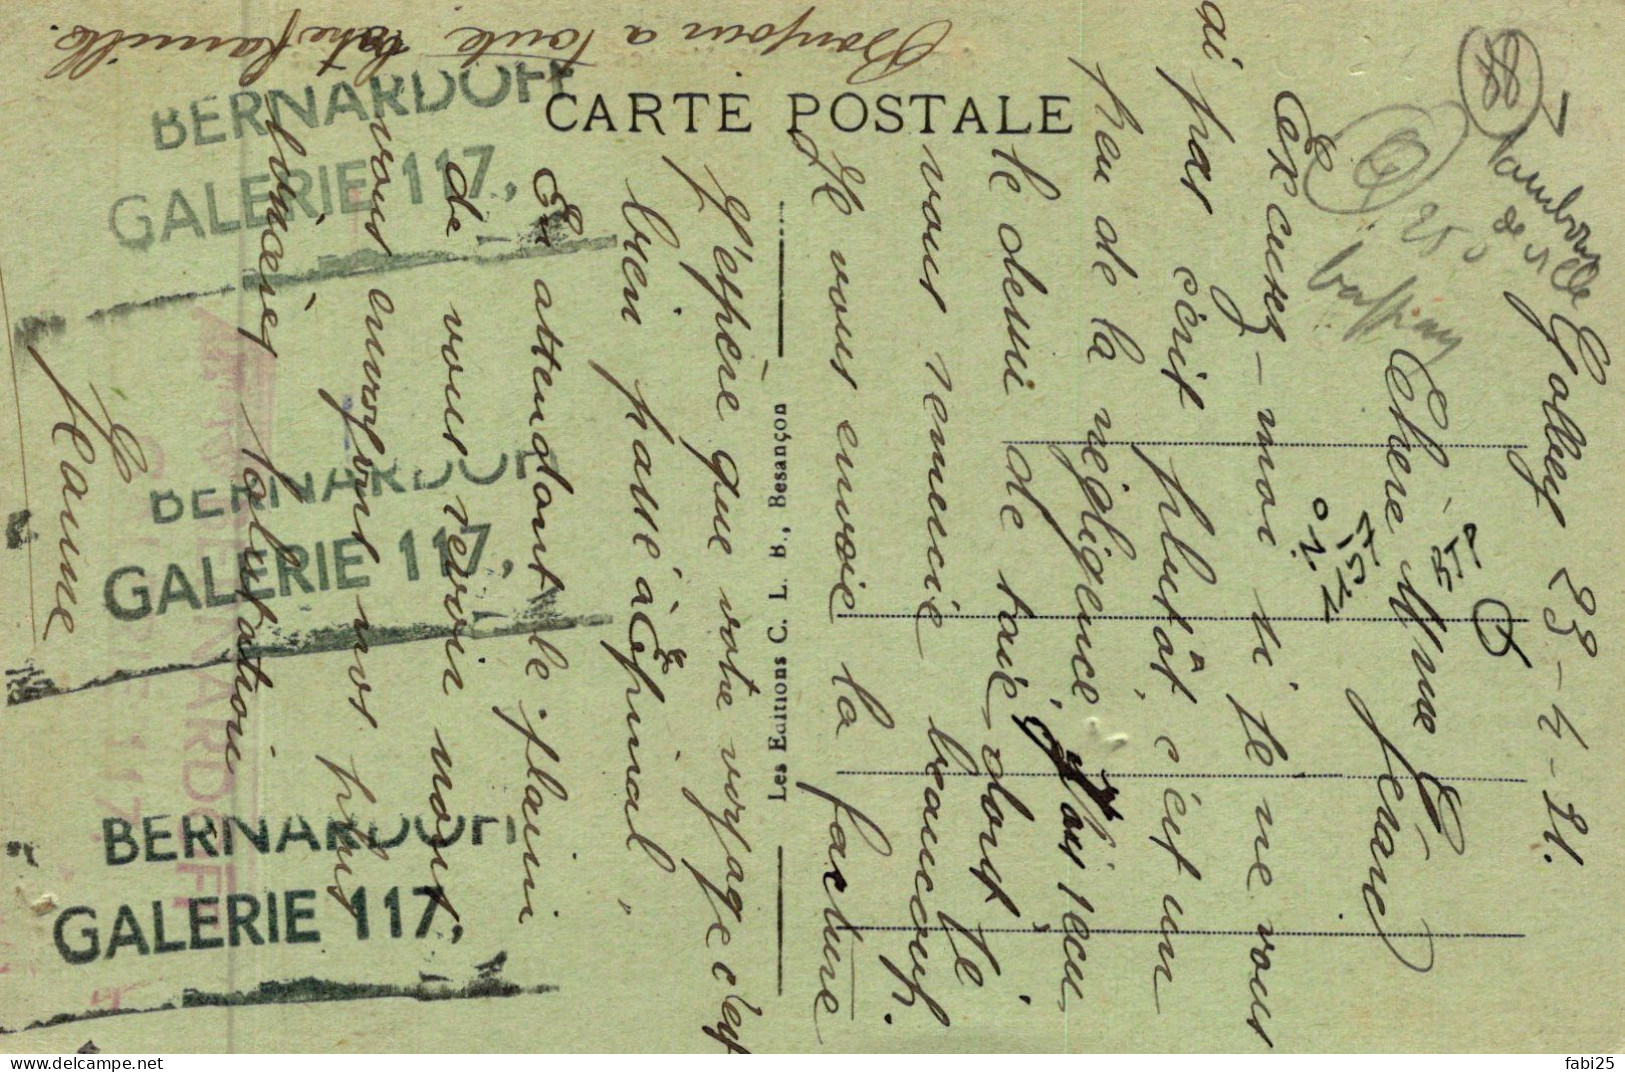 Golbey 23-4-21.
Chère Mme Férand
Excusez-moi si je ne vous
ai pas écrit plutôt, c'est un
peu de la négligence, j'ai reçu
le dessu de taie, dont je
vous remercie beaucoup.
Je vous envoie la facture
J'espère que votre voyage c'est
bien passé à Epinal,
En attendant le plaisir
de vous revoir nous
vous envoyons nos plus
sincères salutations
Jeanne
Bonjour a toute votre famille.
CARTE POSTALE
Les Editions C. L. B., Besançon
BERNARDOFF
GALERIE 117.
BERNARDOFF
GALERIE 117.
BERNARDOFF
GALERIE 117.
BERNARDOFF
88
250
fabi25